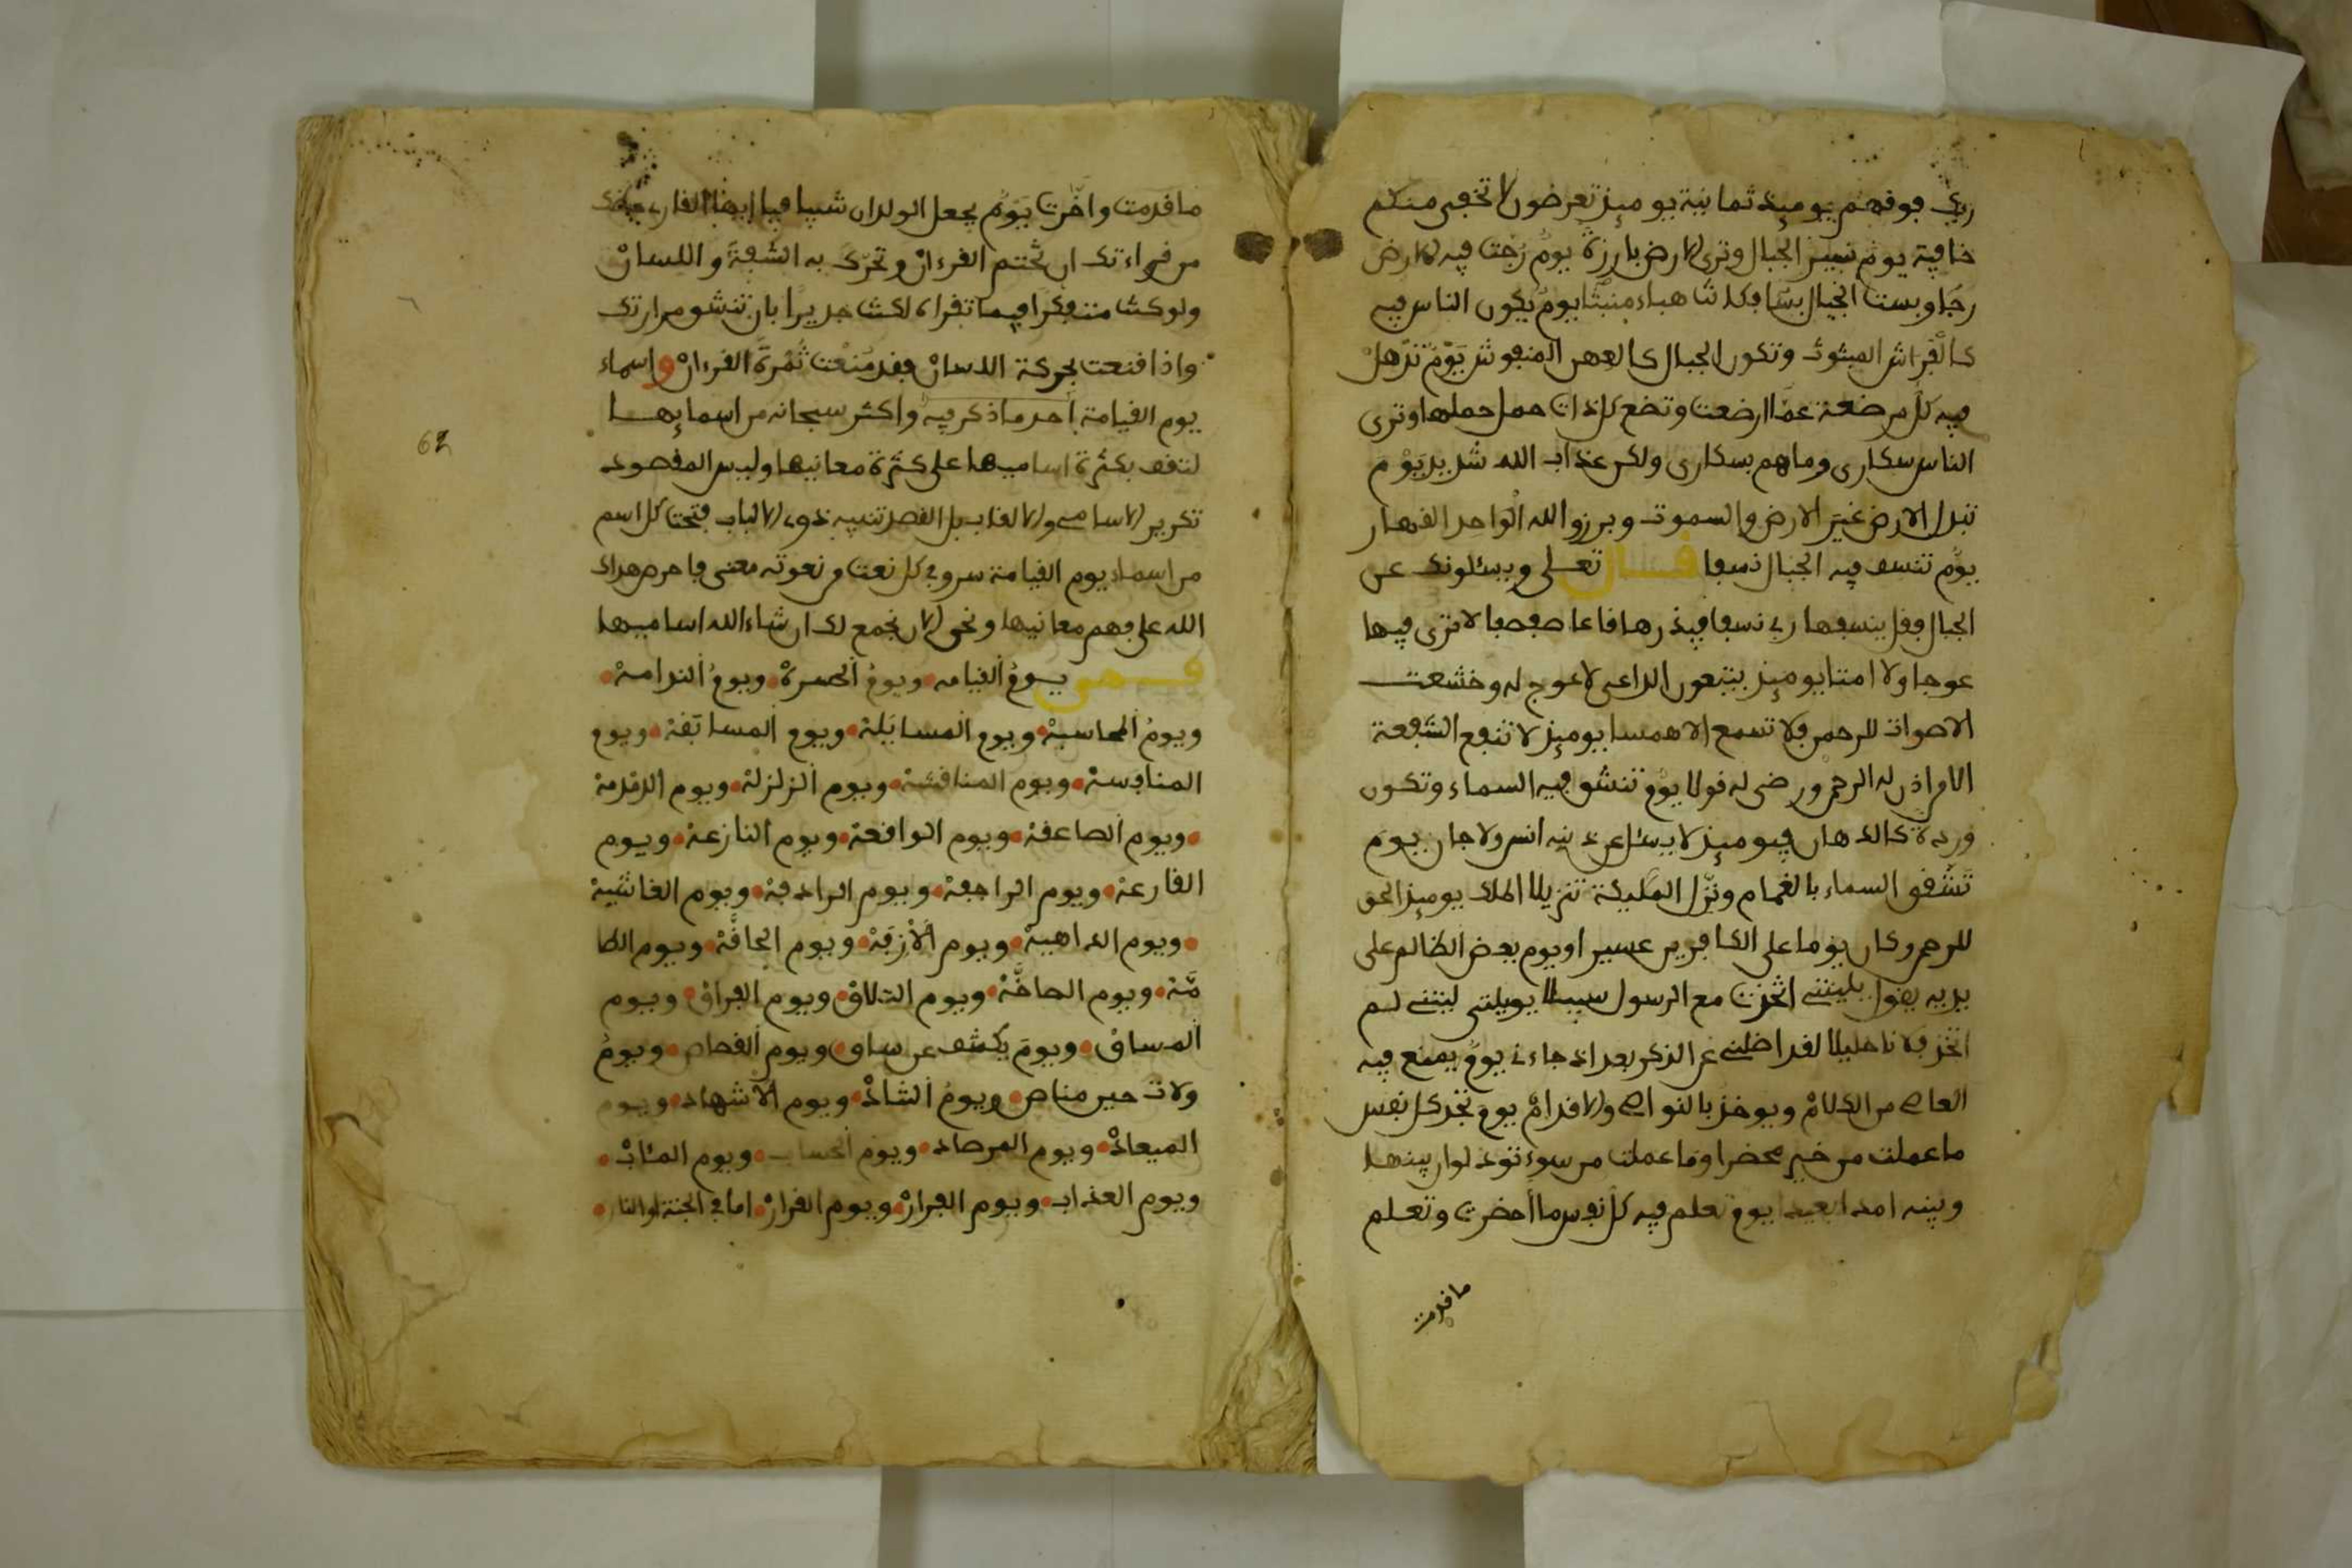 ربك فوقهم يوميذ ثمانية يوميذ تعرضون لا تخفى منكم
خافية يوم نسير الجبال وترى الارض بارزة يوم رجت فيه الارض
رجا وبست الجبال بسا فكانت هباء منبثا يوم يكون الناس فيه
كالفراش المبثوث وتكون الجبال كالعهن المنفوش يوم تذهل
فيه كل مرضعة عما ارضعت وتضع كل ذات حمل حملها وترى
الناس سكارى وما هم بسكارى ولكن عذاب الله شديد يوم
تبدل الارض غير الارض والسموت وبرزوا لله الواحد القهار
يوم تنسف فيه الجبال نسفا قال تعلى ويسئلونك عن
الجبال فقل ينسفها ربي نسفا فيذرها قاعا صفصفا لا ترى فيها
عوجا ولا امتا يوميذ يتبعون الداعي لا عوج له وخشعت
الاصوات للرحمن فلا تسمع الا همسا يوميذ لا تنفع الشفعة
الا من اذن له الرحمن ورضي له قولا يوم تنشق فيه السماء وتكون
وردة كالدهان فيوميذ لا يسئل عن ذنبه انس ولا جان يوم
تشقق السماء بالغمام ونزل المليكة تنزيلا الملك يوميذ الحق
للرحمن وكان يوما على الكافرين عسيرا ويوم يعض الظالم على
يديه يقول يليتني اتخذت مع الرسول سبيلا يويلتى ليتني لم
اتخذ فلانا خليلا لقد اضلني عن الذكر بعد اذ جاءني يوم يمنع فيه
العاصي من الكلام ويوخذ بالنواصي والاقدام يوم تجد كل نفس
ما عملت من خير محضرا وما عملت من سوء تود لو ان بينها
وبينه امدا بعيدا يوم تعلم فيه كل نفس ما احضرت وتعلم
ما قدمت
ما قدمت واخرت يوم يجعل الولدان شيبا فيا ايها القارى
من قراءتك ان تختم القرءان وتحرك به الشفة واللسان
ولو كنت متفكرا فيما تقراه لكنت جديرا بان تنشق مرارتك
واذا قنعت بحركة اللسان فقد منعت ثمرة القرءان واسماء
يوم القيامة احد ما ذكر فيه واكثر سبحانه من اسمايها
لتقف بكثرة اساميها على كثرة معانيها وليس المقصود
تكرير الاسامي والالقاب بل القصد تنبيه ذوي الالباب فتحت كل اسم
من اسماء يوم القيامة سر وفي كل نعت من نعوته معنى فاحرص هداك
الله على فهم معانيها ونحن الان نجمع لك ان شاء الله اساميها
فهي يوم القيامه ويوم الحسرة ويوم الندامة
ويوم المحاسبة ويوم المسايلة ويوم المسابقة ويوم
المنافسة ويوم المناقشة ويوم الزلزلة ويوم الدمدمة
ويوم الصاعقة ويوم الواقعة ويوم النازعة ويوم
القارعة ويوم الراجفة ويوم الرادفة ويوم الغاشية
ويوم الداهية ويوم الازفة ويوم الحاقة ويوم الطا
مة ويوم الصاخة ويوم التلاق ويوم الفراق ويوم
المساق ويوم يكشف عن ساق ويوم القصاص ويوم
ولات حين مناص ويوم التناد ويوم الاشهاد ويوم
الميعاد ويوم المرصاد ويوم الحساب ويوم المئاب
ويوم العذاب ويوم الفرار ويوم القرار اما في الجنة او النار
62